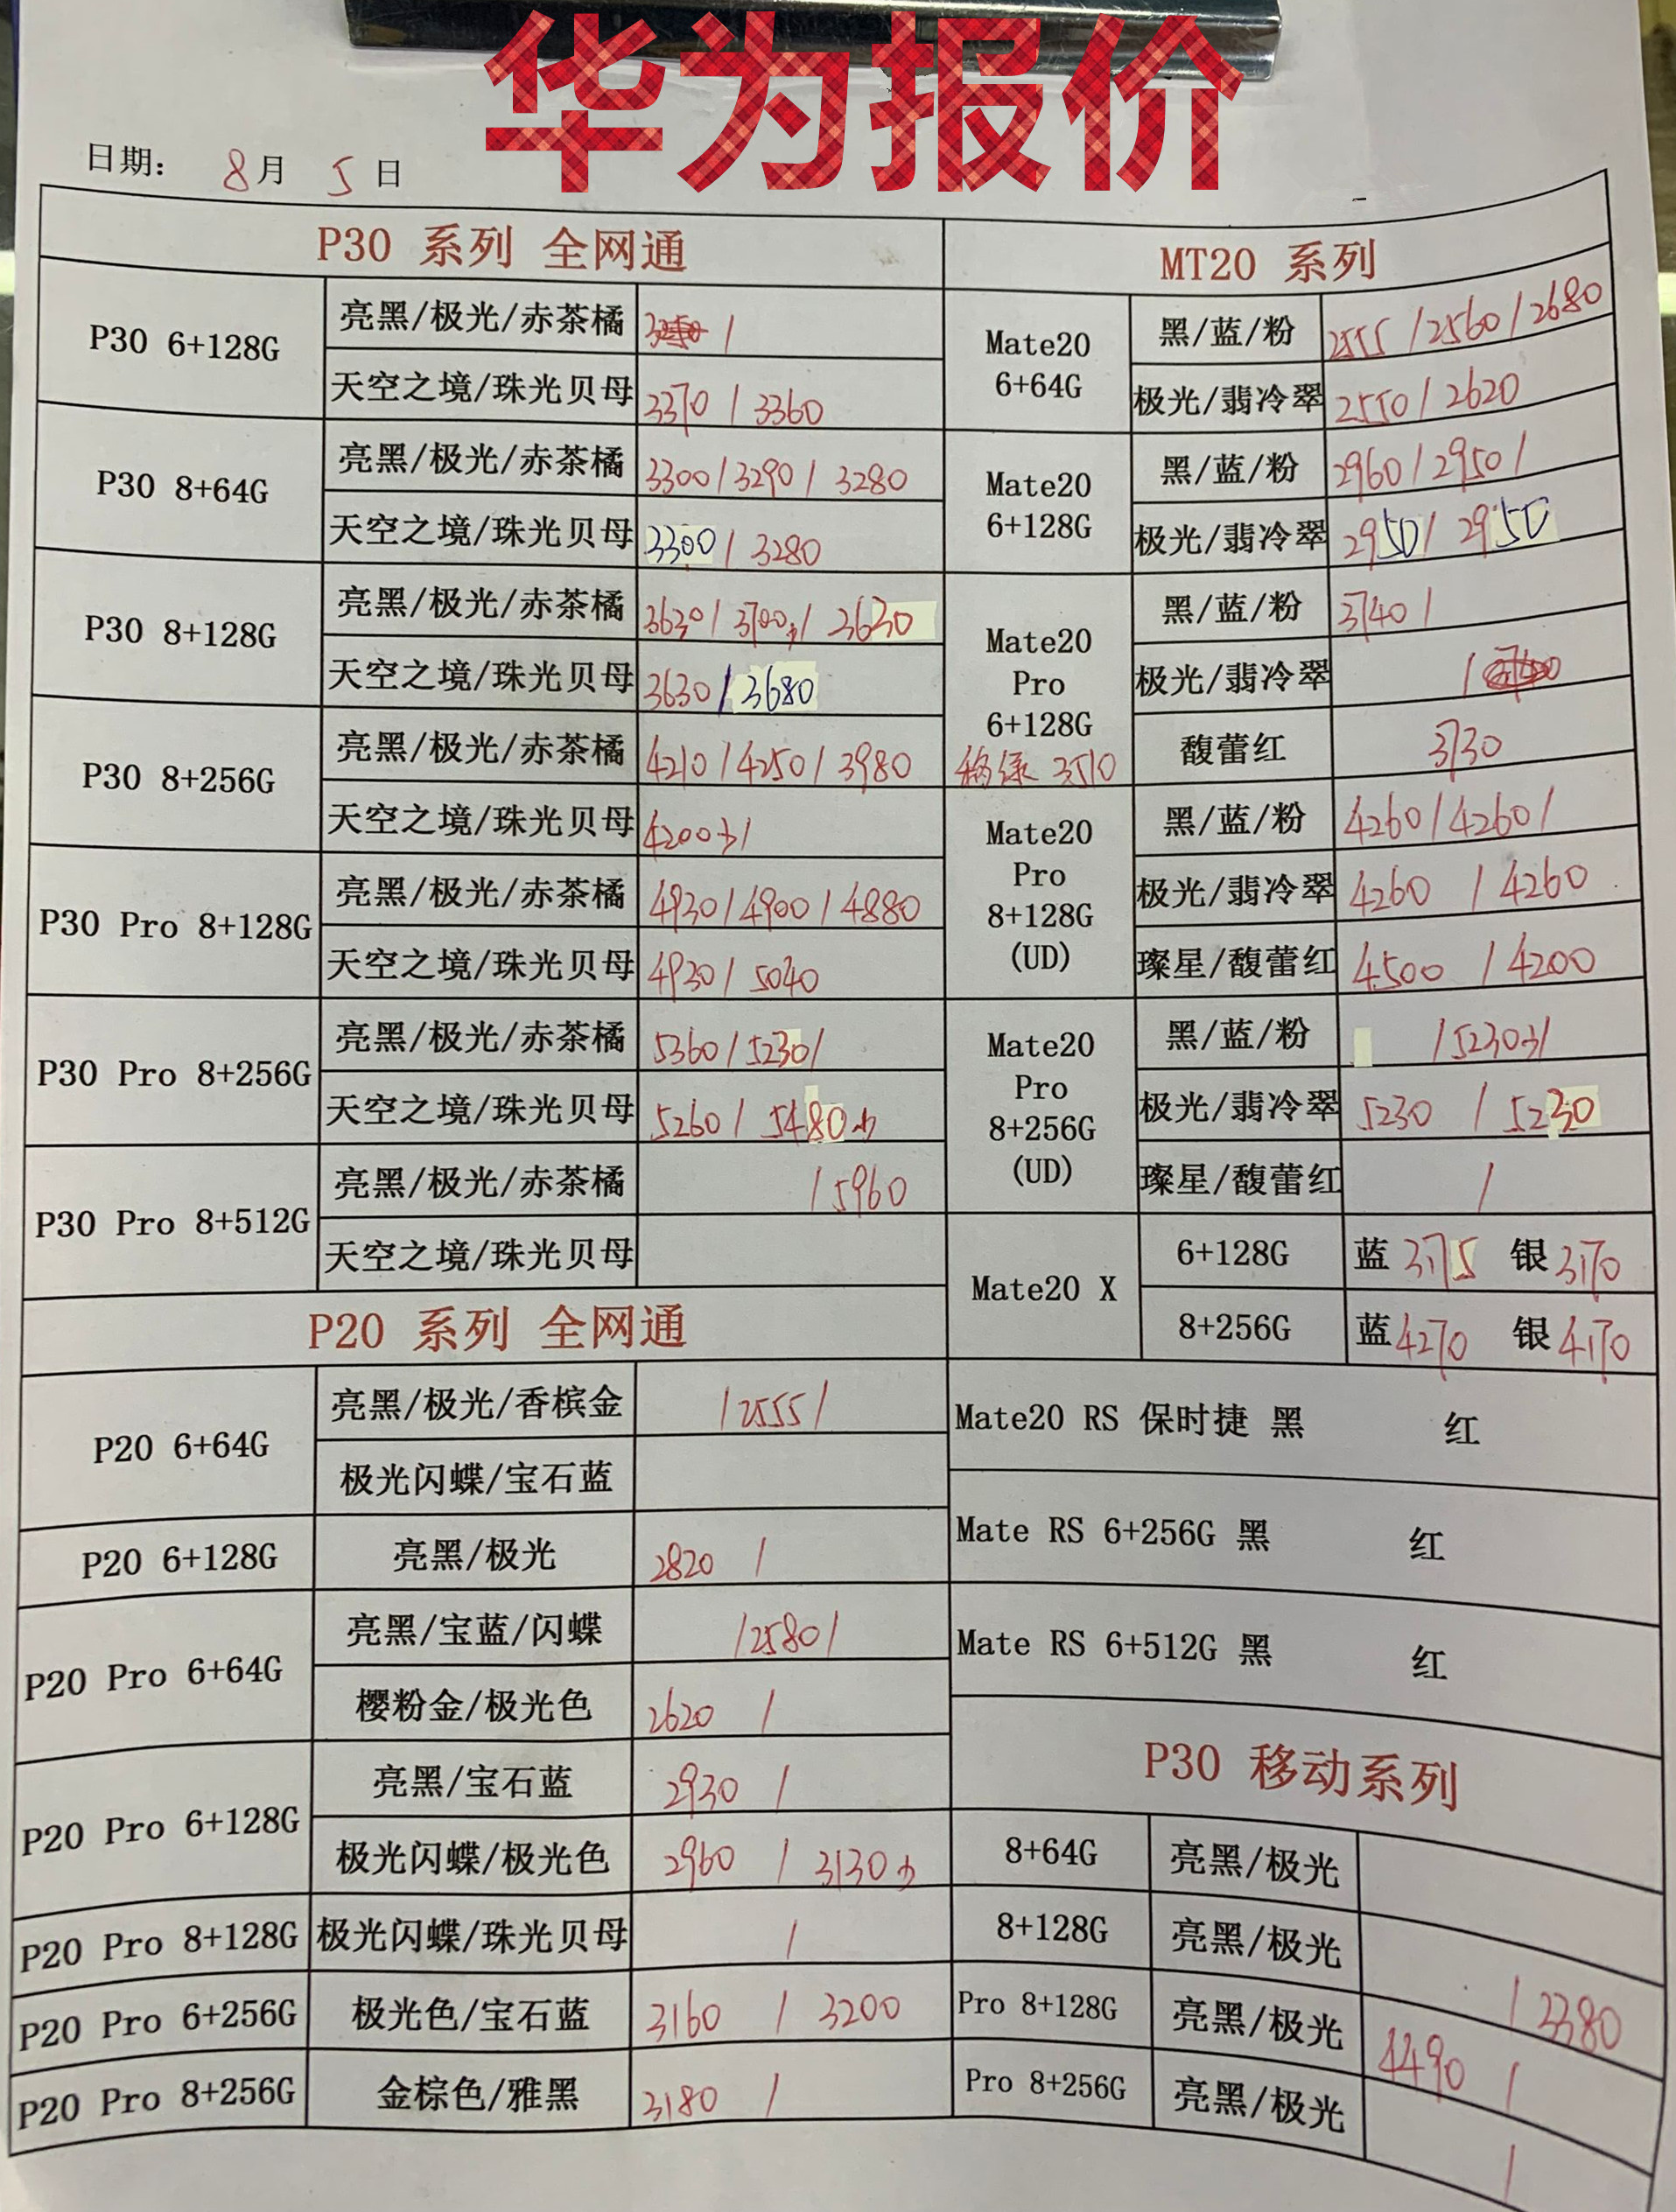 华为报价
日期： 8月 5日
P30 系列 全网通
P30 6+128G
亮黑/极光/赤茶橘 /
天空之境/珠光贝母 3370 / 3360
P30 8+64G
亮黑/极光/赤茶橘 3300/3290/ 3280
天空之境/珠光贝母 3300/ 3280
P30 8+128G
亮黑/极光/赤茶橘 3630/ 3700少/ 3630
天空之境/珠光贝母 3630/3680
P30 8+256G
亮黑/极光/赤茶橘 4210/4250/3980
天空之境/珠光贝母 4200少/
P30 Pro 8+128G
亮黑/极光/赤茶橘 4930/4900/4880
天空之境/珠光贝母 4930/ 5040
P30 Pro 8+256G
亮黑/极光/赤茶橘 5360/5230/
天空之境/珠光贝母 5260/ 5480少
P30 Pro 8+512G
亮黑/极光/赤茶橘 /5960
天空之境/珠光贝母
P20 系列 全网通
P20 6+64G
亮黑/极光/香槟金 /2555/
极光闪蝶/宝石蓝
P20 6+128G 亮黑/极光 2820 /
P20 Pro 6+64G
亮黑/宝蓝/闪蝶 /2580/
樱粉金/极光色 2620 /
P20 Pro 6+128G
亮黑/宝石蓝 2930 /
极光闪蝶/极光色 2960 / 3130少
P20 Pro 8+128G 极光闪蝶/珠光贝母 /
P20 Pro 6+256G 极光色/宝石蓝 3160 / 3200
P20 Pro 8+256G 金棕色/雅黑 3180 /
MT20 系列
Mate20
6+64G
黑/蓝/粉 2555/2560/2680
极光/翡冷翠 2550/2620
Mate20
6+128G
黑/蓝/粉 2960/2950/
极光/翡冷翠 2950/ 2950
Mate20
Pro
6+128G
绿 3510
黑/蓝/粉 3740/
极光/翡冷翠 /
馥蕾红 3730
Mate20
Pro
8+128G
(UD)
黑/蓝/粉 4260/4260/
极光/翡冷翠 4260 / 4260
璨星/馥蕾红 4500 / 4200
Mate20
Pro
8+256G
(UD)
黑/蓝/粉 /5230少/
极光/翡冷翠 5230 / 5230
璨星/馥蕾红 /
Mate20 X
6+128G 蓝 3175 银 3170
8+256G 蓝 4270 银 4170
Mate20 RS 保时捷 黑 红
Mate RS 6+256G 黑 红
Mate RS 6+512G 黑 红
P30 移动系列
8+64G 亮黑/极光
8+128G 亮黑/极光 / 3380
Pro 8+128G 亮黑/极光 4490 /
Pro 8+256G 亮黑/极光 /